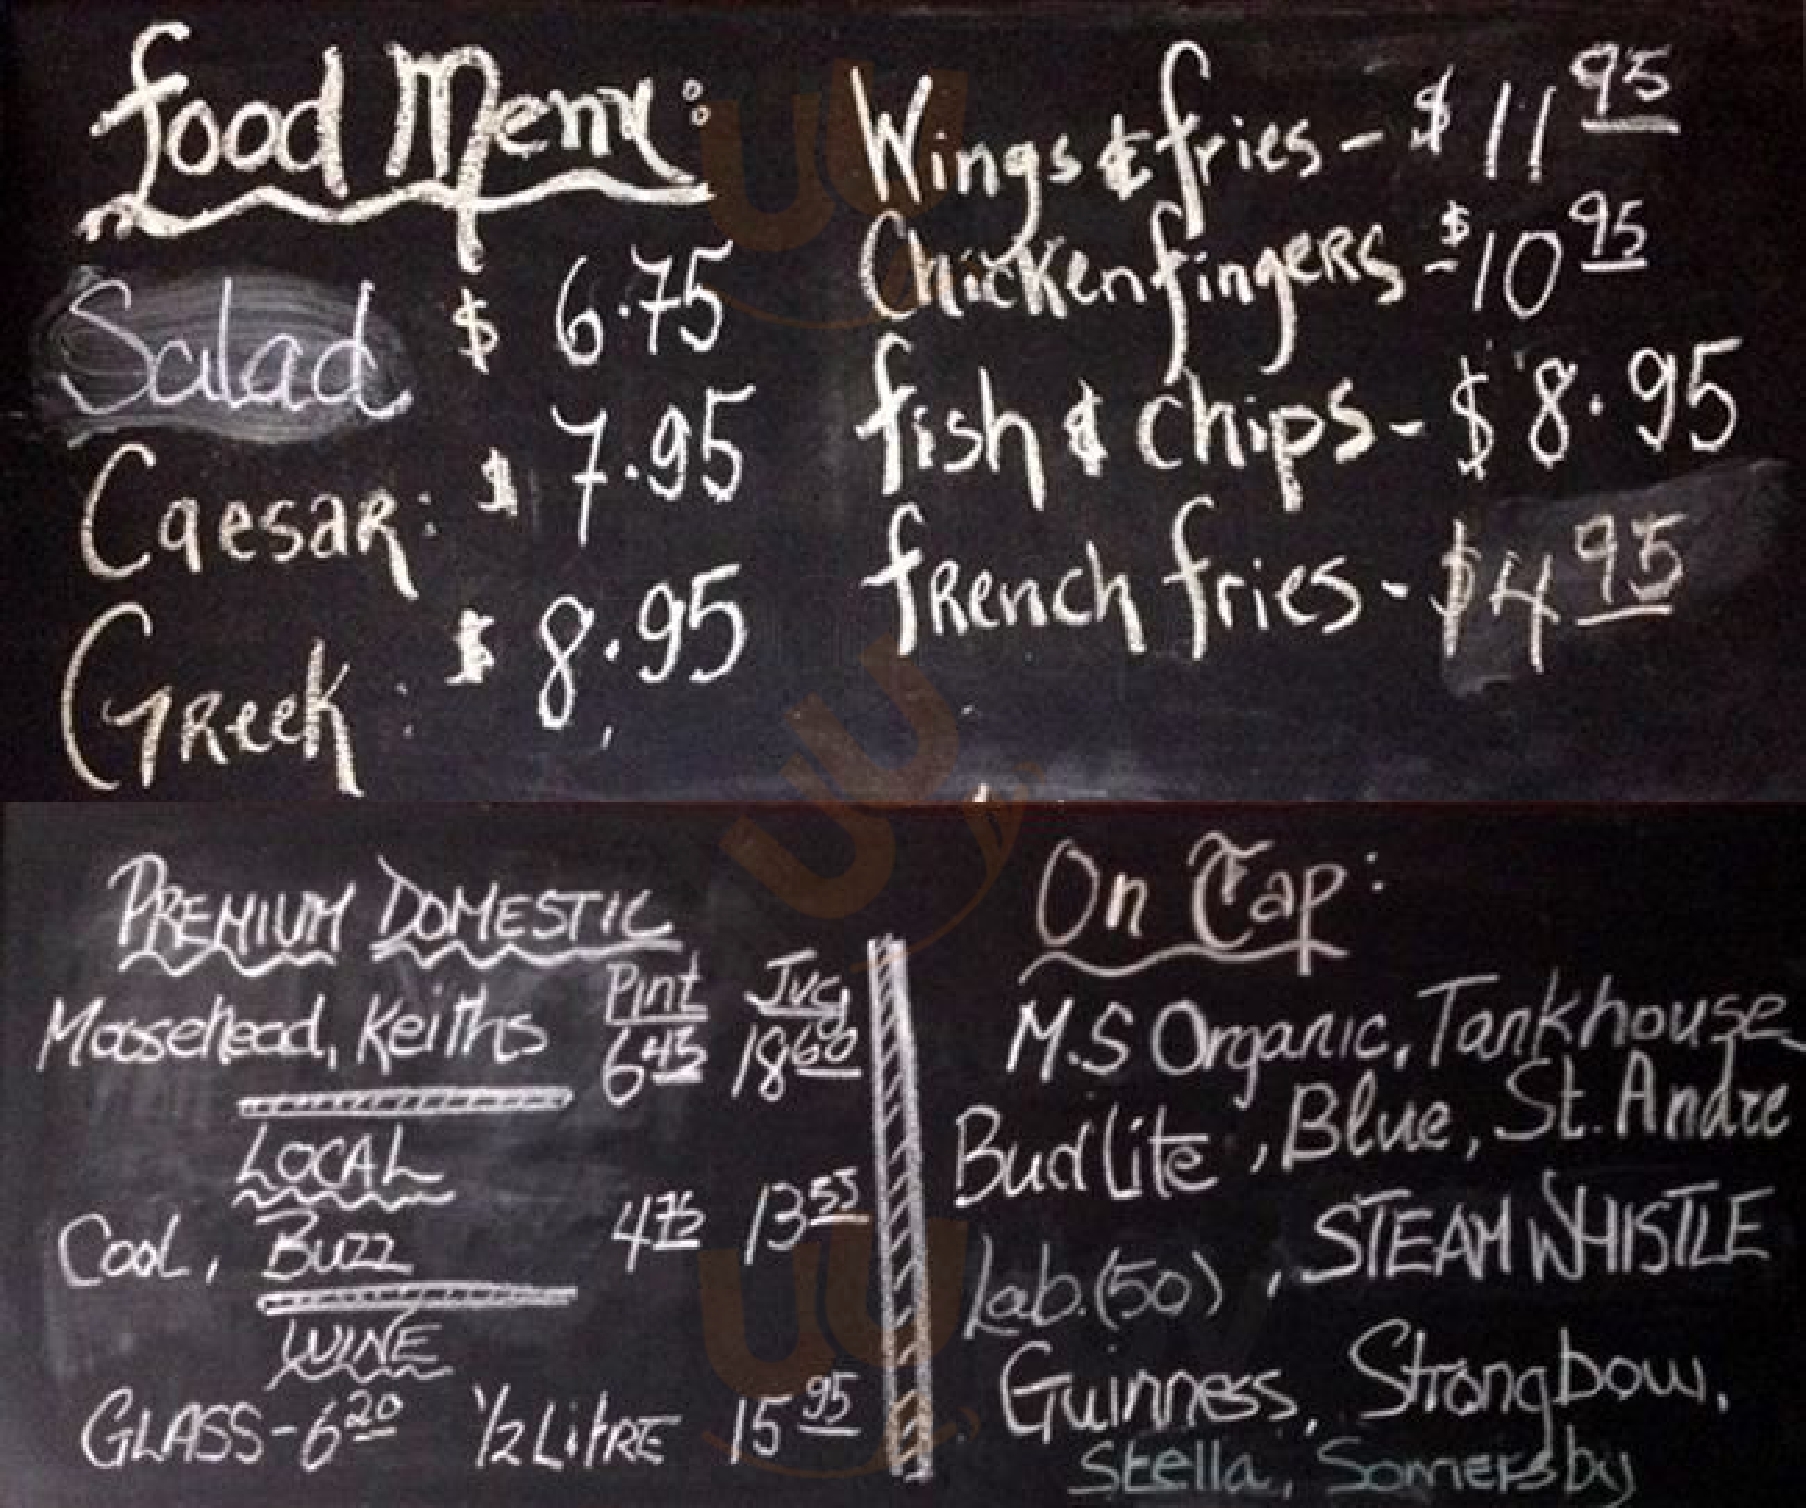 Food Menu:
Salad $ 6.75
Caesar: $ 7.95
Greek: $ 8.95
Wings & fries - $ 11 95
Chicken fingers - $ 10 95
fish & chips - $ 8.95
french fries - $ 4 95
PREMIUM DOMESTIC
Pint Jug
Moosehead, Keiths 6 45 18 60
LOCAL
Cool, Buzz 4 75 13 55
WINE
GLASS - 6 20 1/2 LitRE 15 95
On Tap:
M.S Organic, Tankhouse
Bud Lite, Blue, St. Andre
Lab. (50), STEAM WHISTLE
Guinness, Strongbow,
Stella, Somersby